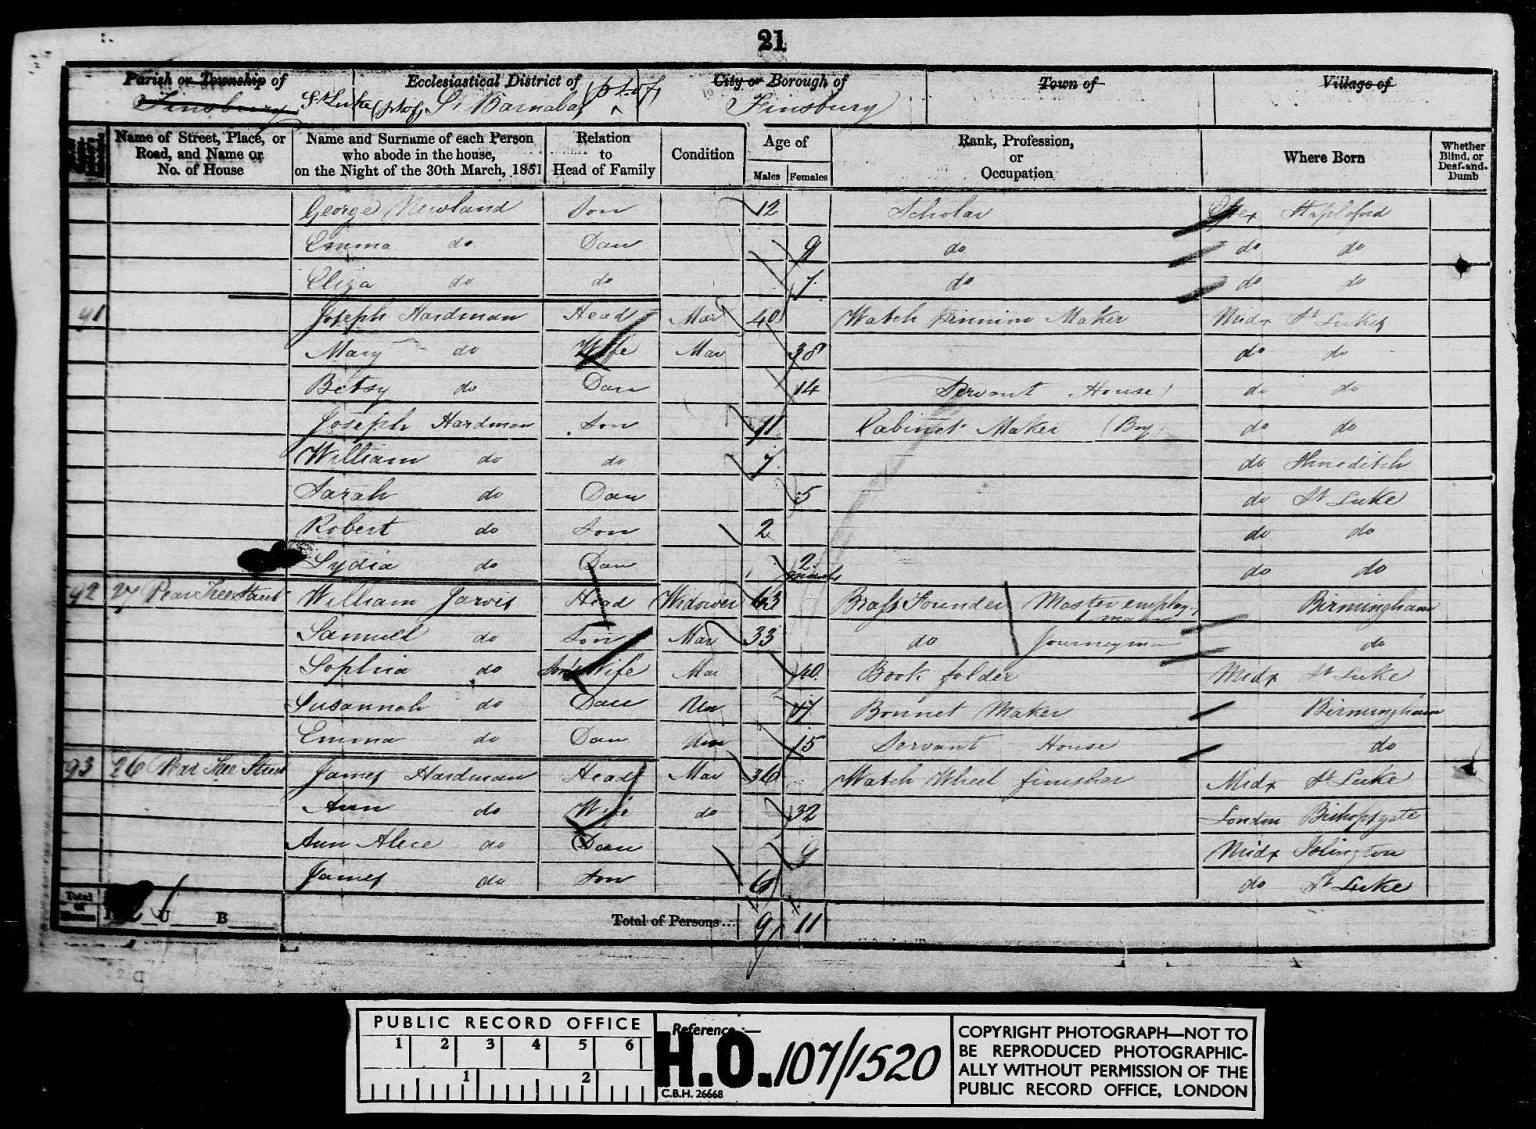 21
Parish or Township of Ecclesiastical District of City or Borough of Town of Village of
Finsbury St Luke (pt of) St Barnabas pt of Finsbury
Name of Street, Place, or Road, and Name or No. of House
Name and Surname of each Person who abode in the house, on the Night of the 30th March, 1851
Relation to Head of Family
Condition
Age of
Males Females
Rank, Profession, or Occupation
Where Born
Whether Blind, or Deaf-and-Dumb
George Newland Son 12 Scholar Essex Stapleford
Emma do Dau 9 do do do
Eliza do do 7 do do do
91 Joseph Hardman Head Mar 40 Watch Pinnion Maker Midx St Lukes
Mary do Wife Mar 38 do do
Betsy do Dau 14 Servant House do do
Joseph Hardman Son 11 Cabinet Maker (Boy) do do
William do do 7 do Shoreditch
Sarah do Dau 5 do St Luke
Robert do Son 2 do do
Lydia do Dau 2 months do do
92 27 Pear Tree Street William Jarvis Head Widower 63 Brass Founder Master employ Birmingham
Samuel do Son Mar 33 do Journeyman do
Sophia do Sons Wife Mar 40 Book folder Midx St Luke
Susannah do Dau Un Bonnet Maker Birmingham
Emma do Dau Un 15 Servant House do
93 26 Pear Tree Street James Hardman Head Mar 36 Watch Wheel finisher Midx St Luke
Ann do Wife do 32 London Bishopsgate
Ann Alice do Dau 9 Midx Islington
James do Son 6 do St Luke
Total of Houses U B Total of Persons... 9 11
PUBLIC RECORD OFFICE
1 2 3 4 5 6
1 2
Reference:—
H.O. 107/1520
C.B.H. 26668
COPYRIGHT PHOTOGRAPH—NOT TO
BE REPRODUCED PHOTOGRAPHIC-
ALLY WITHOUT PERMISSION OF THE
PUBLIC RECORD OFFICE, LONDON